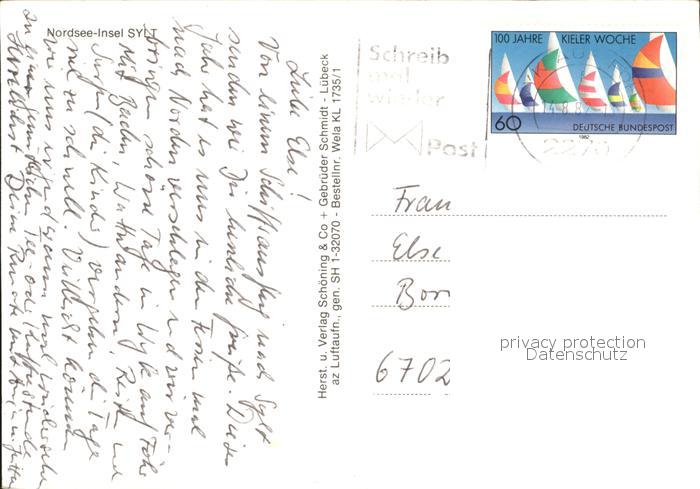 Nordsee-Insel SYLT
Liebe Else!
Von einem Schiffsausflug nach Sylt
senden wir Dir herzliche Grüße. Dieses
Jahr hat es uns in den Ferien mal
nach Norden verschlagen und wir ver-
bringen schöne Tage in Wyk auf Föhr
Mit Baden, Wattwandern, Reiten und
Surfen (die Kinder) vergehen die Tage
viel zu schnell. Vielleicht können
wir uns irgendwann mal wiedersehen
zu einer gemütlichen Tee- oder Kaffeestunde
Herzlichst Deine
Herst. u. Verlag Schöning & Co + Gebrüder Schmidt - Lübeck
az Luftaufn., gen. SH 1-32070 - Bestellnr. Wela KL 1735/1
Schreib
mal
wieder
Post
100 JAHRE KIELER WOCHE
60 DEUTSCHE BUNDESPOST
1982
2270
Frau
Else
6702
privacy protection
Datenschutz